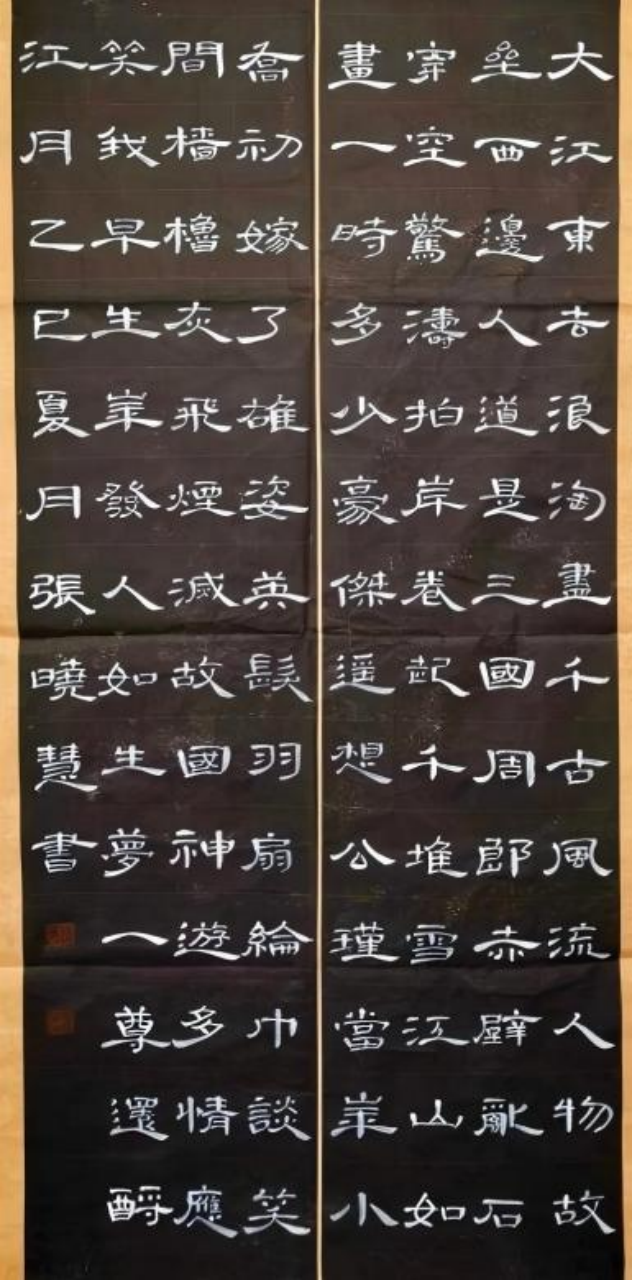 大江東去浪淘盡千古風流人物故
壘西邊人道是三國周郎赤壁亂石
穿空驚濤拍岸卷起千堆雪江山如
畫一時多少豪傑遥想公瑾當年小
喬初嫁了雄姿英發羽扇綸巾談笑
間檣櫓灰飛煙滅故國神遊多情應
笑我早生華發人如生夢一尊還酹
江月乙巳夏月張曉慧書